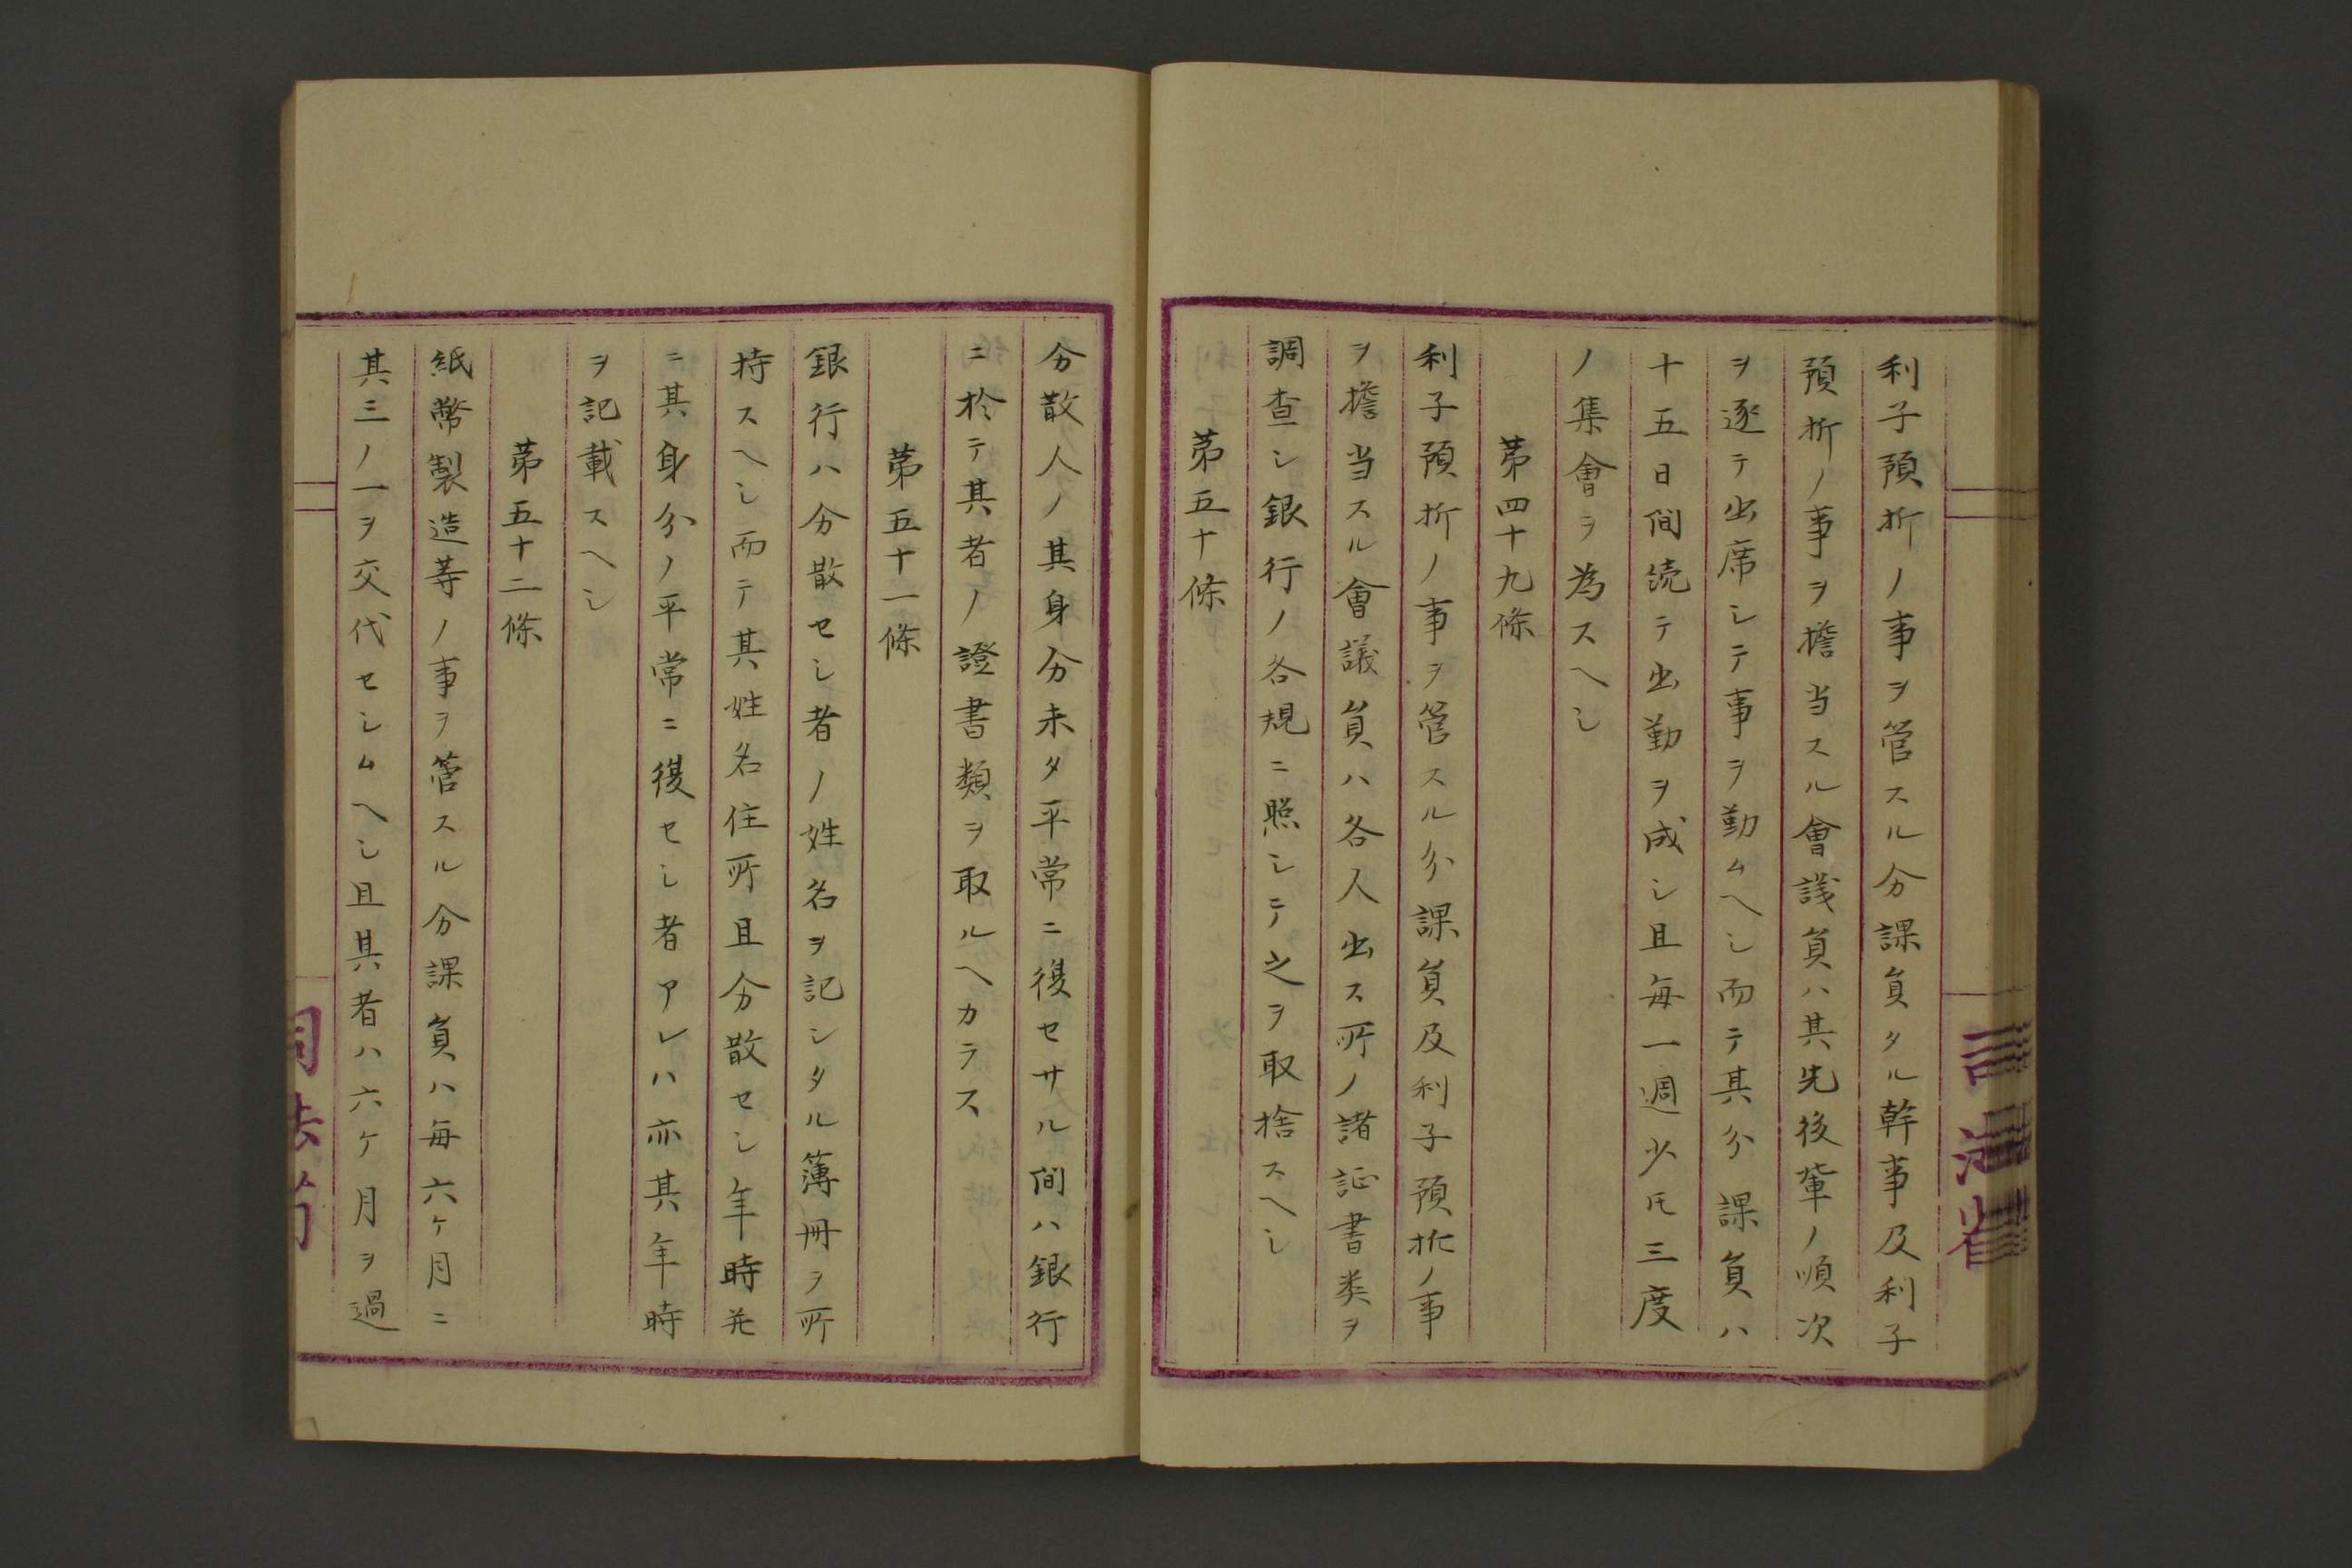 利子預折ノ事ヲ管スル分課負タル幹事及利子
預折ノ事ヲ擔当スル會議負ハ其先後輩ノ順次
ヲ逐テ出席シテ事ヲ勤ムヘシ而テ其分課負ハ
十五日間続テ出勤ヲ成シ且毎一週少𪜈三度
ノ集會ヲ為スヘシ
第四十九條
利子預折ノ事ヲ管スル分課負及利子預折ノ事
ヲ擔当スル會議負ハ各人出ス所ノ諸証書类ヲ
調查シ銀行ノ各規ニ照シテ之ヲ取捨スヘシ
第五十條
分散人ノ其身分未タ平常ニ復セサル間ハ銀行
ニ於テ其者ノ證書類ヲ取ルヘカラス
第五十一條
銀行ハ分散セシ者ノ姓名ヲ記シタル簿冊ヲ所
持スヘシ而テ其姓名住所且分散セシ年時并
ニ其身分ノ平常ニ復セシ者アレハ亦其年時
ヲ記載スヘシ
第五十二條
紙幣製造等ノ事ヲ管スル分課負ハ毎六ケ月ニ
其三ノ一ヲ交代セシムヘシ且其者ハ六ケ月ヲ過
司法省